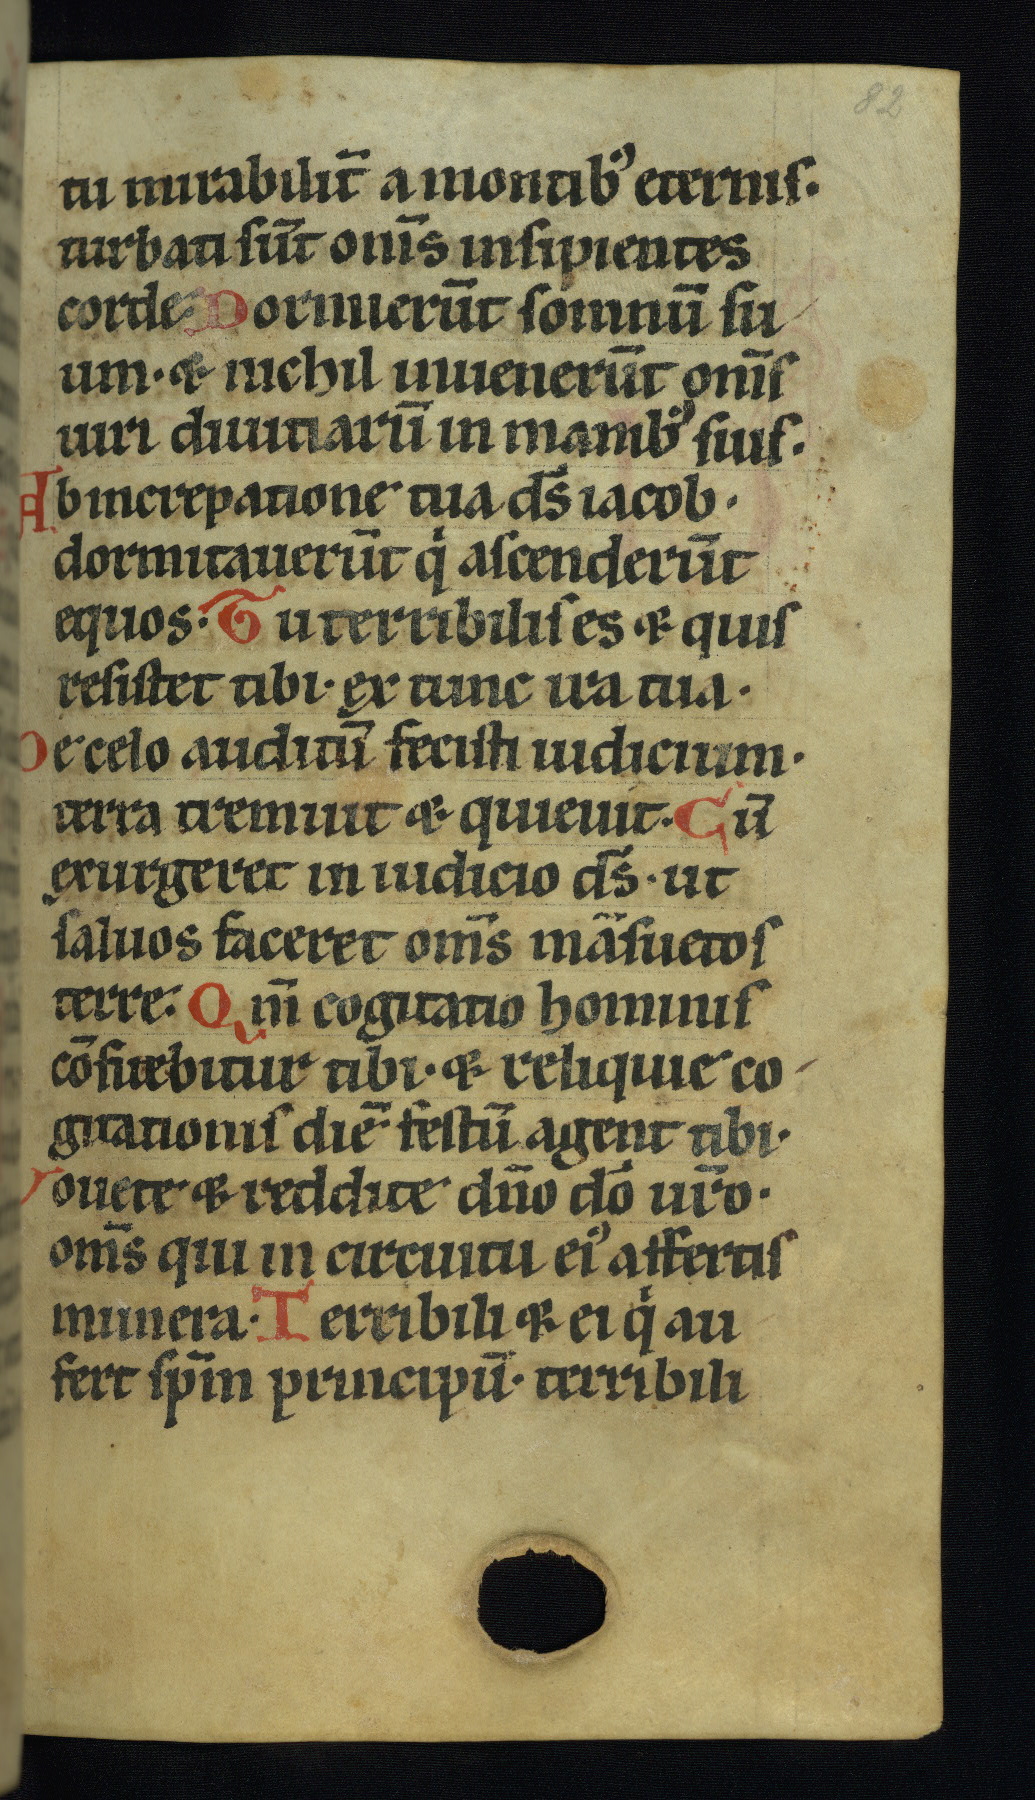 82
tu mirabilit̄ a montibꝰ eternis.
turbati sūt om̄s insipientes
corde. Dormierūt somnū su
um. & nichil inuenerūt om̄s
uiri diuitiarū in manibꝰ suis.
Ab increpatione tua ds̄ iacob.
dormitauerūt qͥ ascenderūt
equos. Tu terribilis es & quis
resistet tibi. ex tunc ira tua.
De celo auditū fecisti iudicium.
terra tremuit & quieuit. Cū
exurgeret in iudicio ds̄. ut
saluos faceret om̄s māsuetos
terre. Qm̄ cogitatio hominis
cōfitebitur tibi. & reliquie co
gitationis diē festū agent tibi.
Vouete & reddite dn̄o dō ur̄o.
om̄s qui in circuitu eiꝰ affertis
munera. Terribili & ei qͥ au
fert sp̄m principū. terribili